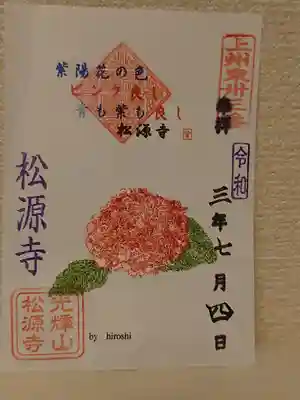 上州東卅三ヶ
奉拝
令和
三年七月四日
紫陽花の色
ピンク良し
青も紫も良し
松源寺
松源寺
光輝山
松源寺
by hiroshi